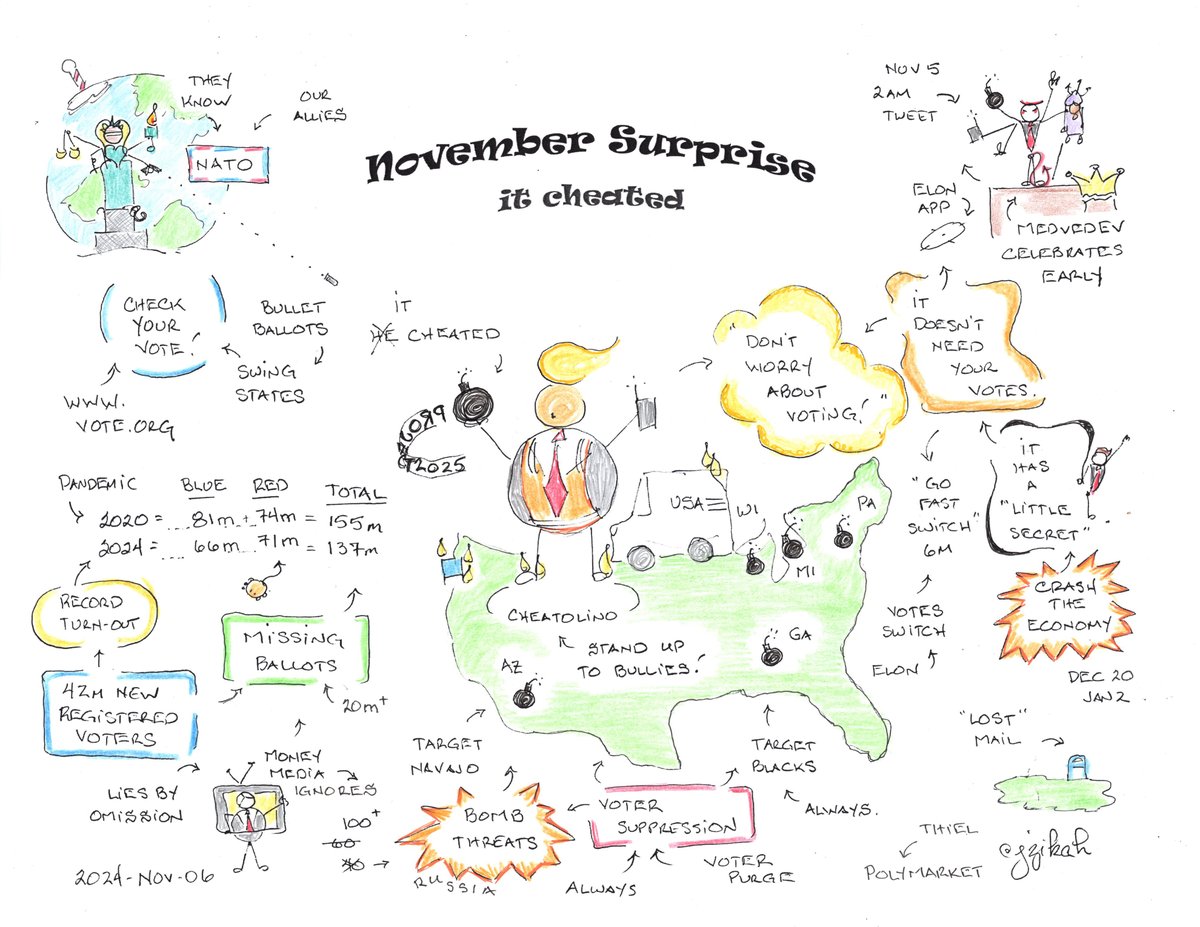 THEY
KNOW
OUR
ALLIES
NATO
November Surprise
it cheated
NOV 5
2AM
TWEET
ELON
APP
MEDVEDEV
CELEBRATES
EARLY
CHECK
YOUR
VOTE!
WWW.
VOTE.ORG
BULLET
BALLOTS
SWING
STATES
iT
HE CHEATED
"DON'T
WORRY
ABOUT
VOTING!"
iT
DOESN'T
NEED
YOUR
VOTES.
iT
HAS
A
"LITTLE
SECRET"
"GO
FAST
SWITCH"
6M
VOTES
SWITCH
ELON
CRASH
THE
ECONOMY
DEC 20
JAN 2
PANDEMIC BLUE RED TOTAL
2020 = 81m + 74m = 155m
2024 = 66m 71m = 137m
RECORD
TURN-OUT
42M NEW
REGISTERED
VOTERS
MISSING
BALLOTS
20m+
LIES BY
OMISSION
MONEY
MEDIA
IGNORES
2024-NOV-06
2025
USA
WI
MI
PA
GA
AZ
CHEATOLINO
STAND UP
TO BULLIES!
TARGET
NAVAJO
TARGET
BLACKS
ALWAYS.
100+
60
BOMB
THREATS
RUSSIA
VOTER
SUPPRESSION
ALWAYS
VOTER
PURGE
"LOST"
MAIL
THIEL
POLYMARKET
@jzikah